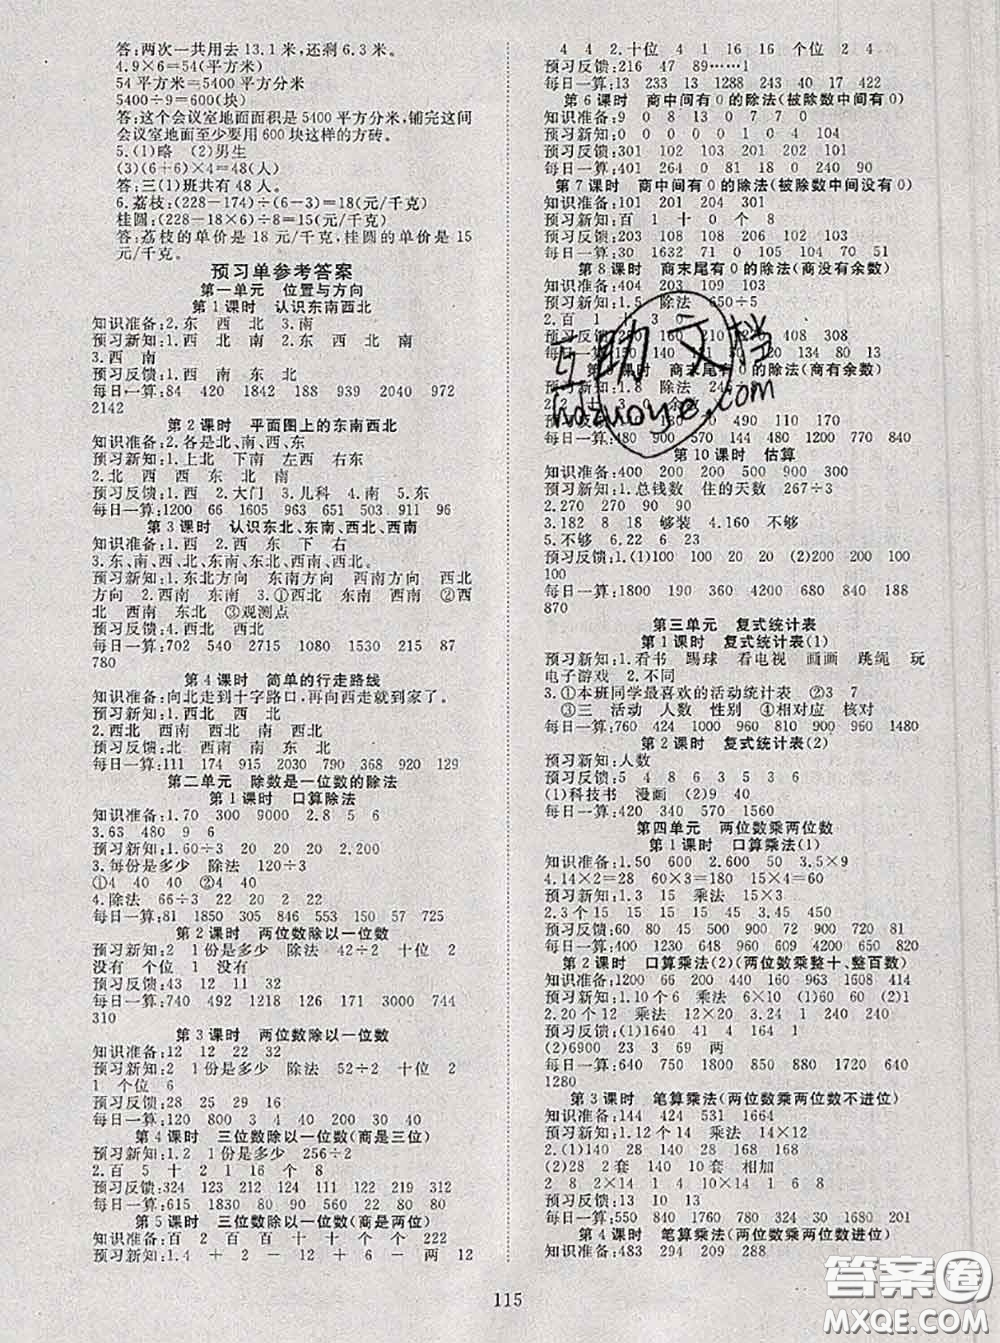 答:两次一共用去 13.1 米,还剩 6.3 米。
4.9×6=54(平方米)
54 平方米=5400 平方分米
5400÷9=600(块)
答:这个会议室地面面积是 5400 平方分米,铺完这间
会议室地面至少要用 600 块这样的方砖。
5.(1)略 (2)男生
(3)(6+6)×4=48(人)
答:三(1)班共有 48 人。
6.荔枝:(228-174)÷(6-3)=18(元/千克)
桂圆:(228-18×6)÷8=15(元/千克)
答:荔枝的单价是 18 元/千克,桂圆的单价是 15
元/千克。
预习单参考答案
第一单元 位置与方向
第 1 课时 认识东南西北
知识准备:2.东 西 北 3.南
预习新知:1.西 北 南 2.东 西 北 南
3.西 南
预习反馈:1.西 南 东 北
每日一算:84 420 1842 488 720 2000 960
2142
第 2 课时 平面图上的东南西北
知识准备:2.各是北、南、西、东
预习新知:1.上北 下南 左西 右东
2.北 西 西 东 北 南
预习反馈:1.西 2.大门 3.儿科 4.南 5.南
每日一算:1200 66 1605 960 651 503 911 96
第 3 课时 认识东北、东南、西北、西南
知识准备:1.西 2.西 东 下 右
3.东、南、西、北、东南、东北、西南、西北。
预习新知:1.东北方向 东南方向 西南方向 西北
方向 2.南 东 3.①西北 东南 西南 ②西
北 西南 东北 ③观测点
预习反馈:4.西北 西南 东北 东南
每日一算:702 540 2715 1080 1530 1230 87
780
第 4 课时 简单的行走路线
知识准备:向北走到十字路口,再向西走就到家了。
预习新知:1.西北 西
2.西北 西南 西南 西北 北
预习反馈:北 西南 南 东北 北
每日一算:111 174 915 2030 790 900 3000 960
第二单元 除数是一位数的除法
第 1 课时 口算除法
知识准备:1.70 300 9000 2.8 5 6
3.63 480 9 6
预习新知:1.60÷3 20 20 20 2.200
3.每份是多少 除法 120÷3
①4 40 40 ②4 40
4.除法 66÷3 22 20 2 22
每日一算:81 1850 305 846 553 150 57 725
第 2 课时 两位数除以一位数
预习新知:2 1份是多少 除法 42÷2 十位 2
没有 个位 1 没有
预习反馈:43 12 11 32
每日一算:740 492 1218 126 171 0 900 444
310
第 3 课时 两位数除以一位数
知识准备:12 12 22 32
预习新知:2 1份是多少 除法 52÷2 十位 2
1 个位 6
预习反馈:28 25 29 16
每日一算:120 800 3 4 200 40 30 40
第 4 课时 三位数除以一位数(商是三位)
预习新知:1份是多少 256÷2
2.百 5 十 2 1 16 个 8
预习反馈:324 123 212 124 111 122 219 212
每日一算:640 1500 9830 1200 560 22 80 80
第 5 课时 三位数除以一位数(商是两位)
知识准备:百 2 百 百 十 十 个 个 222
预习新知:1.4 + 2 - 6 - 两 12
4 4 2.十位 4 1 16 16 个位 2 4
预习反馈:216 47 89……1
每日一算:13 233 13 1288 243 40 17 422
第 6 课时 商中间有 0 的除法(被除数中间有 0)
知识准备:9 0 8 13 0 7 7 0
预习新知:3 0 0 0 0 1 0 4 104
预习反馈:301 102 101 101 102 203
每日一算:301 264 0 81 18 0 240 90
第 7 课时 商中间有 0 的除法(被除数中间没有 0)
知识准备:101 201 204 301
预习新知:百 1 十 0 个 8
预习反馈:203 108 207 109
每日一算:102 0 0 105 104 70 42 70
第 8 课时 商末尾有 0 的除法(商没有余数)
预习新知:1.5 除法 650÷5
2.百 1 1 3 0
408 308
134 80
商末尾有 0 的除法(商有余数)
预习新知:1.8 除法
每日一算:480 900 570 140 480 1200 770 840
第 10 课时 估算
知识准备:400 200 200 500 900
预习新知:1.总钱数 住的天数 267÷3
2.270 270 90 90
3.182 8 18 够装 4.160 不够
5.不够 6.22 6 23
预习反馈:1.(1)100 100 20 20 (2)200 200
100 100
每日一算:1800 190 360 400 1000 1100 188
870
第三单元 复式统计表
第 1 课时 复式统计表(1)
预习新知:1.看书 踢球 看电视 画画 跳绳 玩
电子游戏 2.不同
3.①本班同学最喜欢的活动统计表 ②3 7
③三 活动 人数 性别 ④相对应 核对
每日一算:760 424 1000 960 810 900 960 1480
第 2 课时 复式统计表(2)
预习新知:人数
预习反馈:5 4 8 6 3 5 3 2
(1)科技书 漫画 (2)9 40
每日一算:420 340 570 1560
第四单元 两位数乘两位数
第 1 课时 口算乘法(1)
知识准备:1.50 600 2.600 50 3.5×9
4.14×2=28 60×3=180
预习新知:1.3 15 乘法 15×3
2.3 个15 15 15 15 45 45
预习反馈:60 80 45 500 90 72 900 720 81
每日一算:400 1230 648 1000 400 420 650 820
第 2 课时 口算乘法(2)(两位数乘整十、整百数)
知识准备:1200 66 200 440 160 150 390 400
预习新知:1.10个 6 乘法 6×10 (1)60 (2)60
2.20个 12 乘法 12×20 (3)240
预习反馈:(1)1640 41 1640 (2)1640
(2)6900 23 3 69 两
每日一算:640 1500 1800 800 880 1550 640
1280
第 3 课时 笔算乘法(两位数乘两位数不进位)
知识准备:144 424 531 1664
预习新知:1.12个 14 乘法 14×12
2.(1)140 28 140 28 168 168
(2)28 2套 140 10套 相加
2 8 2×14 1 4 10×14
预习反馈:13 10 10 13
每日一算:550 840 1500 760 324 30 600 490
第 4 课时 笔算乘法(两位数乘两位数进位)
知识准备:483 294 209 288
115
互助文档
hdzuoye.com
答案圈
MXQE.COM